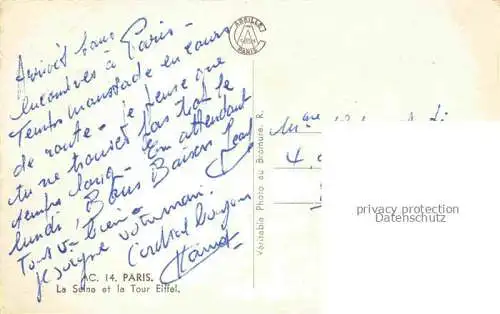 Arrivés sans
encombres à Paris -
Temps maussade en cours
de route - Je pense que
tu ne trouves pas trop le
temps long - En attendant
lundi, Bons Baisers
Tout va bien -
Je soigne votre mari.
Cordial bonjour
ABEILLE
A
PARIS
Véritable Photo au Bromure. R.
privacy protection
Datenschutz
AC. 14. PARIS.
La Seine et la Tour Eiffel.